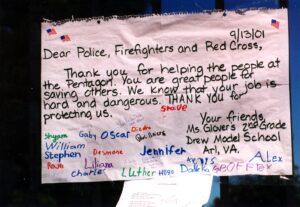 9/13/01
Dear Police, Firefighters and Red Cross,
Thank you for helping the people at
the Pentagon. You are great people for
saving others. We know that your job is
hard and dangerous. THANK YOU for
protecting us.
Your friends,
Ms. Glover's 2nd Grade
Drew Model School
Arl, VA.
Steve
Shyam Gaby Oscar Diedra
William
Stephen Desmone Jennifer
Liliana Alex
Charlie Luther Hugo